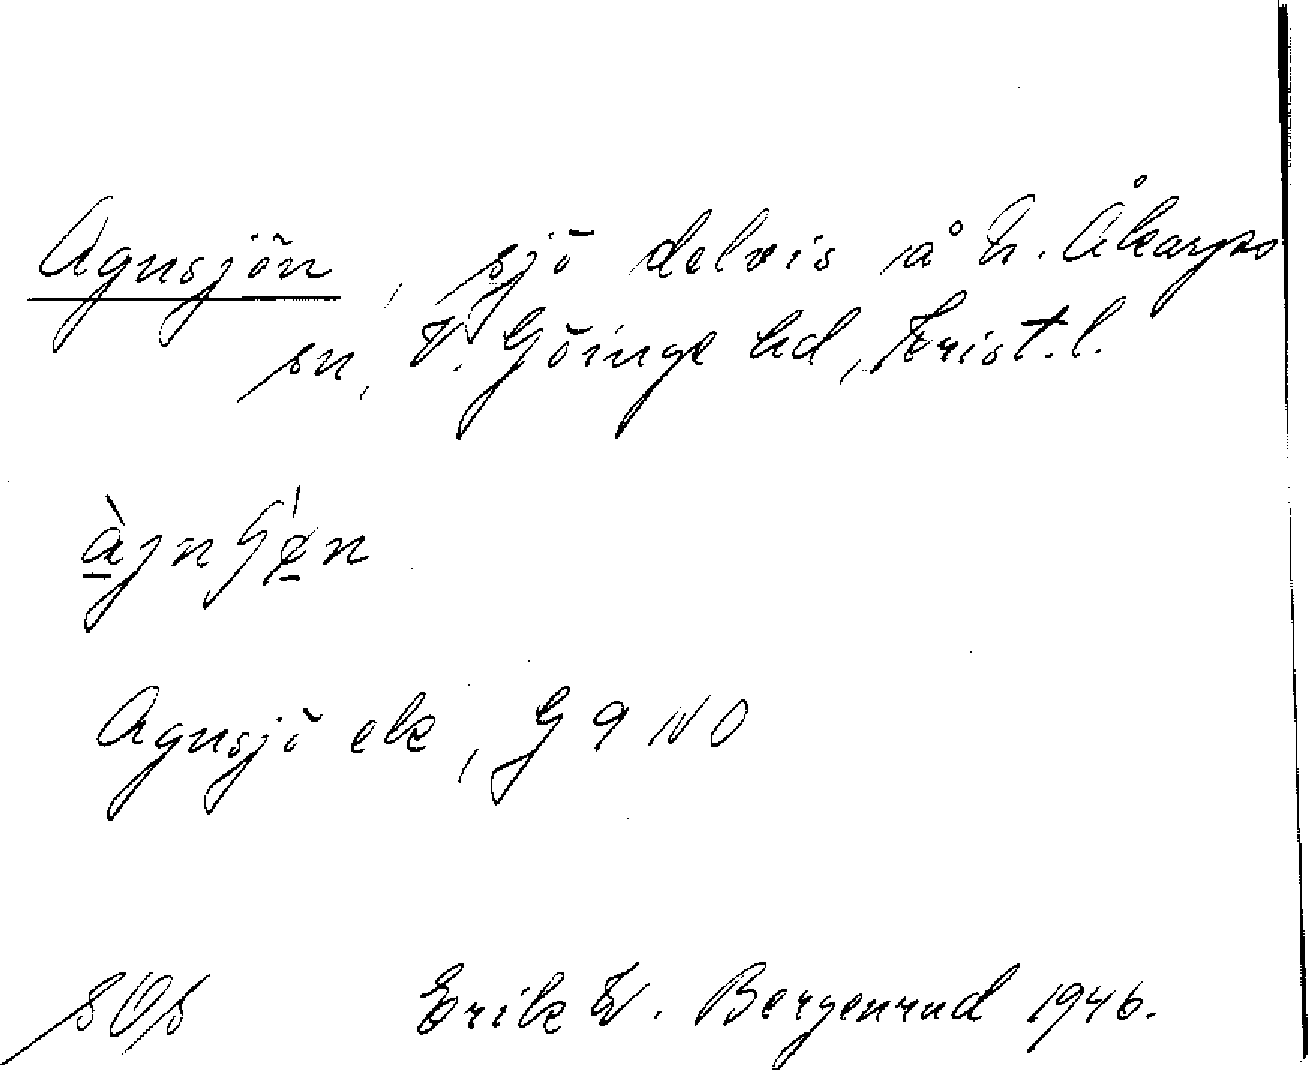 Agnsjön, sjö delvis å N. Åkarps
sn, V. Göinge hd, Krist.l.
Agnsjö ek, G 9 NO
Erik W. Bergenrud 1946.